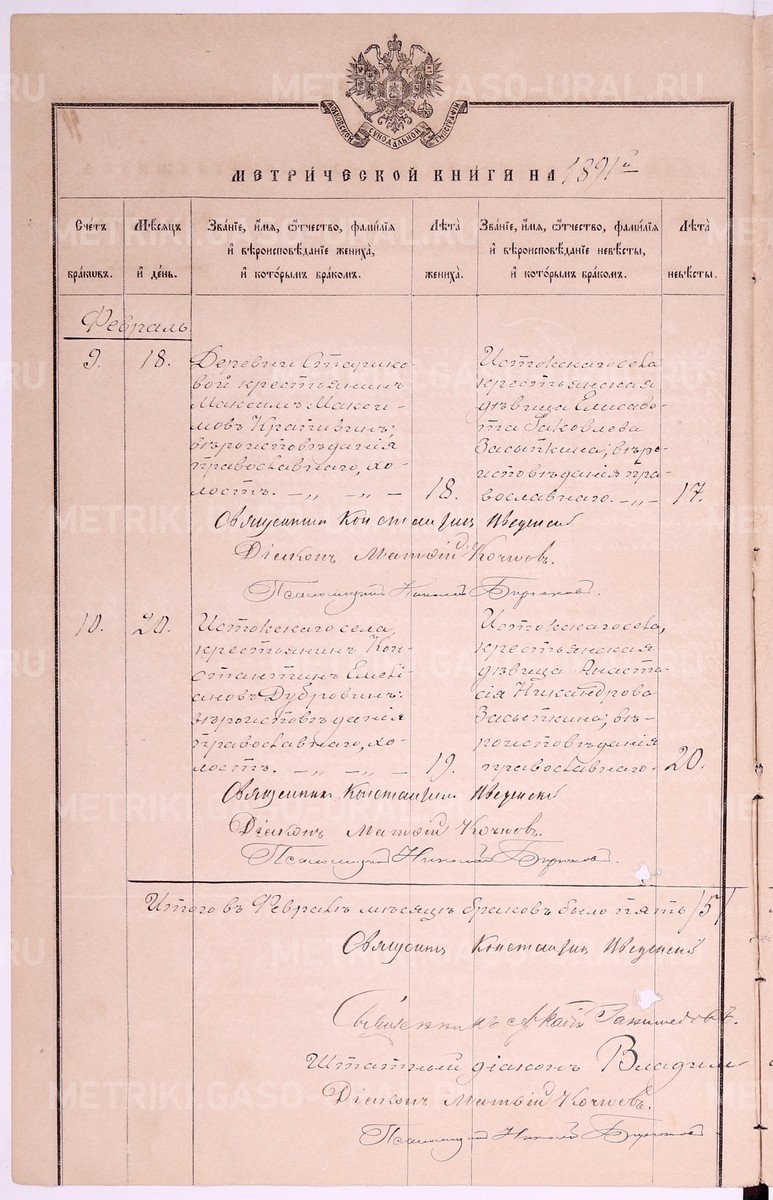 МОСКОВСКОЙ СѴНОДАЛЬНОЙ ТИПОГРАФІИ
МЕТРИ́ЧЕСКОЙ КНИ́ГИ НА 1891й
Сче́тъ браковъ.
Мѣ́сѧцъ и҆ де́нь.
Зва́нїе, и҆́мѧ, ѻ҆́тчество, фами́лїѧ и҆ вѣроисповѣ́данїе жениха̀, и҆ кото́рымъ бра́комъ.
Лѣ́та жениха̀.
Зва́нїе, и҆́мѧ, ѻ҆́тчество, фами́лїѧ и҆ вѣроисповѣ́данїе невѣ́сты, и҆ кото́рымъ бра́комъ.
Лѣ́та невѣ́сты.
Февраль
9.
18.
Деревни Старико-
вой крестьянинъ
Максимъ Макси-
мовъ Крапивинъ;
вѣроисповѣданія
православнаго, хо-
лостъ. – „ – „ –
18.
Истокскаго села
крестьянская
дѣвица Елисаве-
та Іаковлева
Засыпкина; вѣро-
исповѣданія пра-
вославнаго. – „ –
17.
Священникъ Константинъ
Діаконъ Матѳій Кочневъ.
Псаломщикъ Николай
10.
20.
Истокскаго села,
крестьянинъ Кон-
стантинъ Емелі-
ановъ Дубровинъ:
вѣроисповѣданія
православнаго, хо-
лостъ. – „ – „ –
19.
Истокскаго села,
крестьянская
дѣвица Анаста-
сія Никандрова
Засыпкина; вѣ-
роисповѣданія
православнаго.
20.
Священникъ Константинъ
Діаконъ Матѳій Кочневъ.
Псаломщикъ Николай
Итого въ Февралѣ мѣсяцѣ браковъ было пять /5/
Священникъ Константинъ
Священникъ
Штатный діаконъ Владим
Діаконъ Матѳій Кочневъ.
Псаломщикъ Николай
METRIKI.GASO-URAL.RU